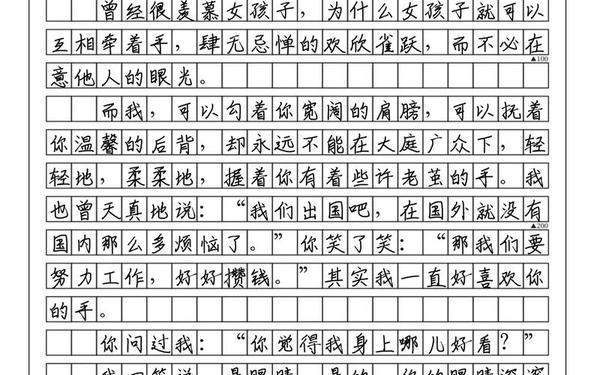 曾经很羡慕女孩子，为什么女孩子就可以
互相牵着手，肆无忌惮的欢欣雀跃，而不必在
▲100
意他人的眼光。
而我，可以勾着你宽阔的肩膀，可以抚着
你温馨的后背，却永远不能在大庭广众下，轻
轻地，柔柔地，握着你有着些许老茧的手。我
也曾天真地说：“我们出国吧，在国外就没有
▲200
国内那么多烦恼了。”你笑了笑：“那我们要
努力工作，好好攒钱。”其实我一直好喜欢你
的手。
你问过我：“你觉得我身上哪儿好看？”